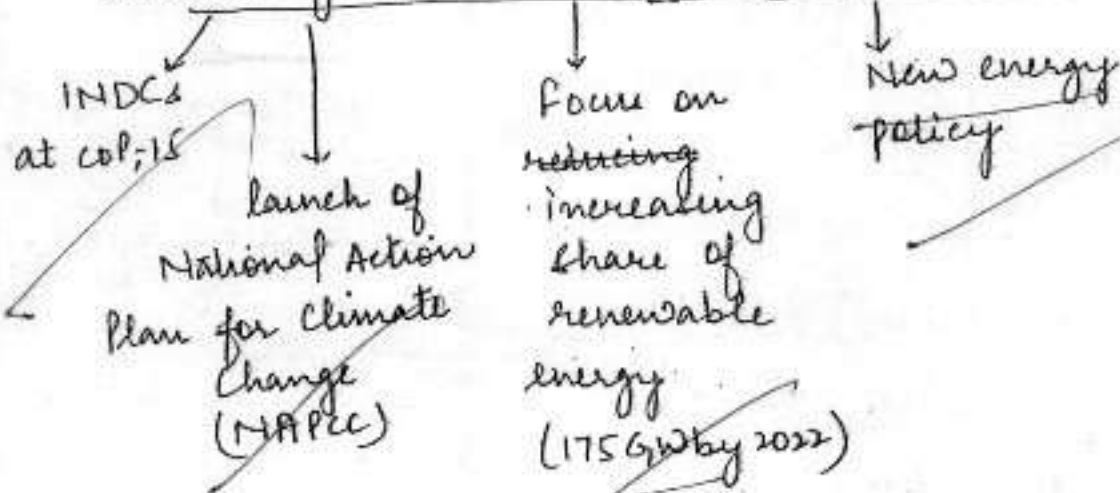 INDCs
at COP-15
launch of
National Action
Plan for Climate
Change
(NAPCC)
Focus on
reducing
increasing
share of
renewable
energy
(175 GW by 2022)
New energy
policy